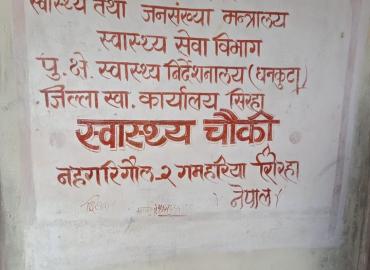 स्वास्थ्य तथा जनसंख्या मन्त्रालय
स्वास्थ्य सेवा विभाग
पु. क्षे. स्वास्थ्य निर्देशनालय (धनकुटा)
जिल्ला स्वा. कार्यालय सिरहा
स्वास्थ्य चौकी
नहगरिगौल-२ गमहरिया सिरहा
नेपाल